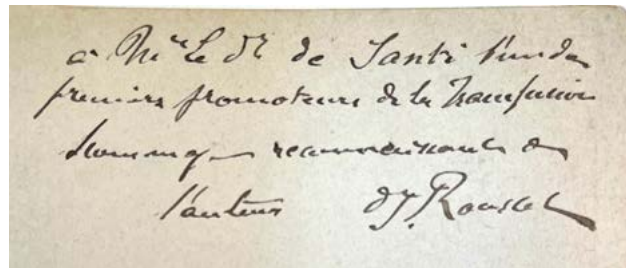 à Mr le Dr de Santi l'un des
premiers promoteurs de la Transfusion
hommage reconnaissant de
l'auteur Dr J. Roussel